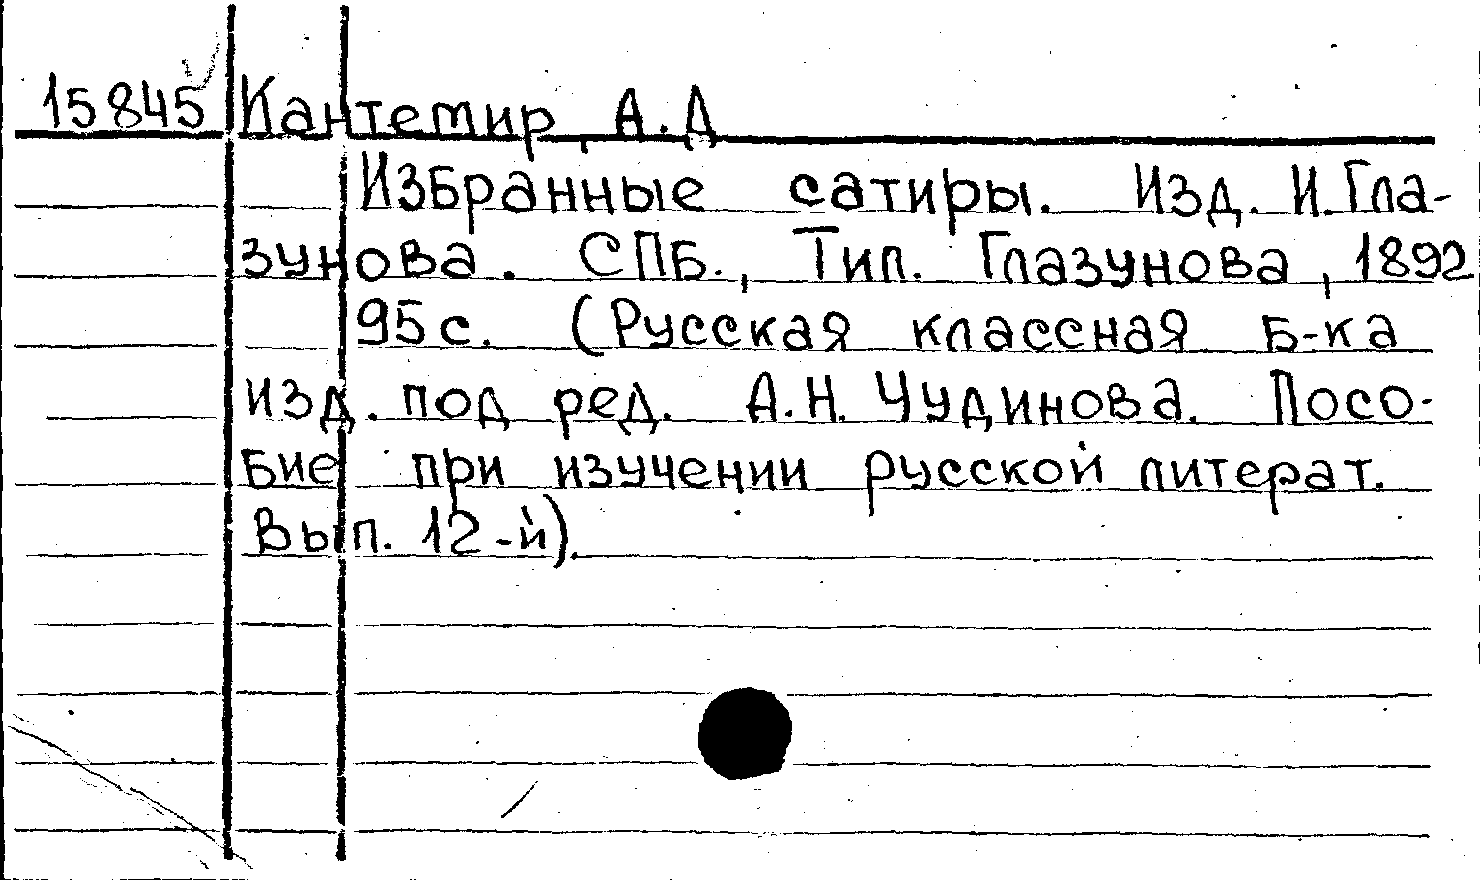 15845 Кантемир, А.Д
Избранные сатиры. Изд. И.Гла-
зунова. СПБ., Тип. Глазунова, 1892
95с. (Русская классная Б-ка
изд. под ред. А.Н. Чудинова. Посо-
Бие при изучении русской литерат.
Вып. 12-й).